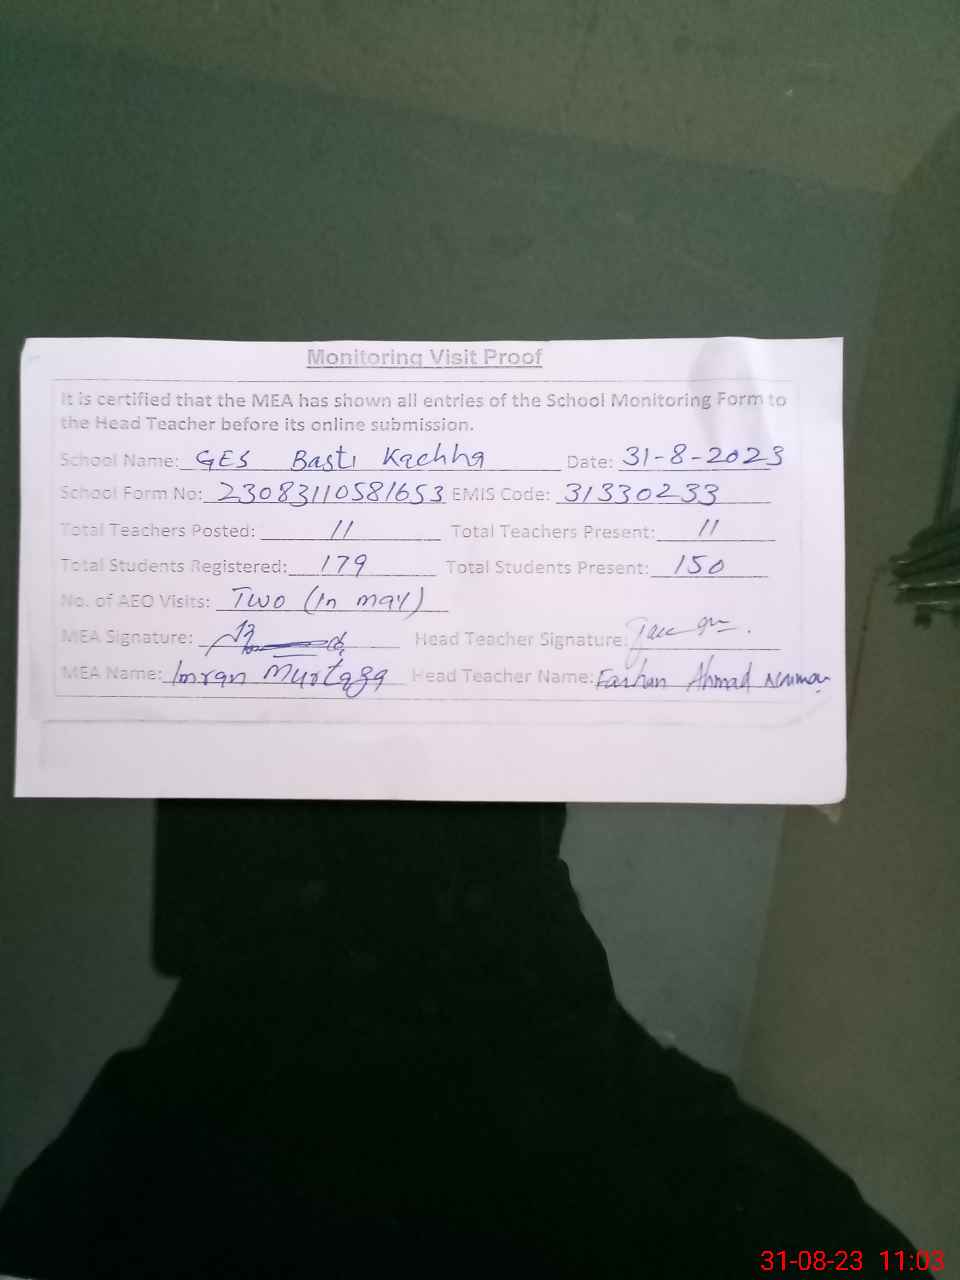 Monitoring Visit Proof
It is certified that the MEA has shown all entries of the School Monitoring Form to
the Head Teacher before its online submission.
School Name: GES Basti Kachha Date: 31-8-2023
School Form No: 23083110581653 EMIS Code: 31330233
Total Teachers Posted: 11 Total Teachers Present: 11
Total Students Registered: 179 Total Students Present: 150
No. of AEO Visits: Two (In may)
MEA Signature: Head Teacher Signature:
MEA Name: Imran Murtaza Head Teacher Name: Farhan Ahmad
31-08-23 11:03